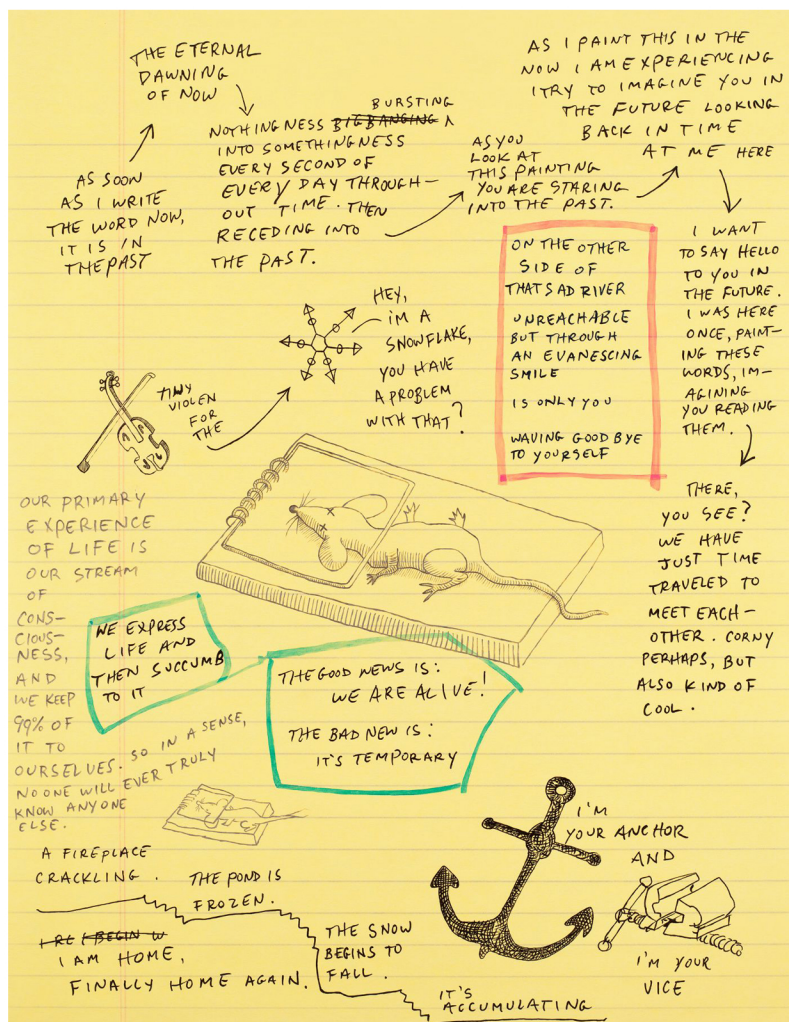 AS SOON
AS I WRITE
THE WORD NOW,
IT IS IN
THE PAST
THE ETERNAL
DAWNING
OF NOW
BURSTING
NOTHINGNESS BIG BANGING ∧
INTO SOMETHINGNESS
EVERY SECOND OF
EVERY DAY THROUGH-
OUT TIME. THEN
RECEDING INTO
THE PAST.
AS YOU
LOOK AT
THIS PAINTING
YOU ARE STARING
INTO THE PAST.
AS I PAINT THIS IN THE
NOW I AM EXPERIENCING
I TRY TO IMAGINE YOU IN
THE FUTURE LOOKING
BACK IN TIME
AT ME HERE
I WANT
TO SAY HELLO
TO YOU IN
THE FUTURE.
I WAS HERE
ONCE, PAINT-
ING THESE
WORDS, IM-
AGINING
YOU READING
THEM.
THERE,
YOU SEE?
WE HAVE
JUST TIME
TRAVELED TO
MEET EACH-
OTHER. CORNY
PERHAPS, BUT
ALSO KIND OF
COOL.
ON THE OTHER
SIDE OF
THAT SAD RIVER
UNREACHABLE
BUT THROUGH
AN EVANESCING
SMILE
IS ONLY YOU
WAVING GOOD BYE
TO YOURSELF
TINY
VIOLEN
FOR
THE
HEY,
I'M A
SNOWFLAKE,
YOU HAVE
A PROBLEM
WITH THAT?
OUR PRIMARY
EXPERIENCE
OF LIFE IS
OUR STREAM
OF
CONS-
CIOUS-
NESS,
AND
WE KEEP
99% OF
IT TO
OURSELVES. SO IN A SENSE,
NO ONE WILL EVER TRULY
KNOW ANYONE
ELSE.
WE EXPRESS
LIFE AND
THEN SUCCUMB
TO IT
THE GOOD NEWS IS:
WE ARE ALIVE!
THE BAD NEW IS:
IT'S TEMPORARY
A FIREPLACE
CRACKLING.
THE POND IS
FROZEN.
I AM HOME,
FINALLY HOME AGAIN.
THE SNOW
BEGINS TO
FALL.
IT'S
ACCUMULATING
I'M
YOUR ANCHOR
AND
I'M YOUR
VICE